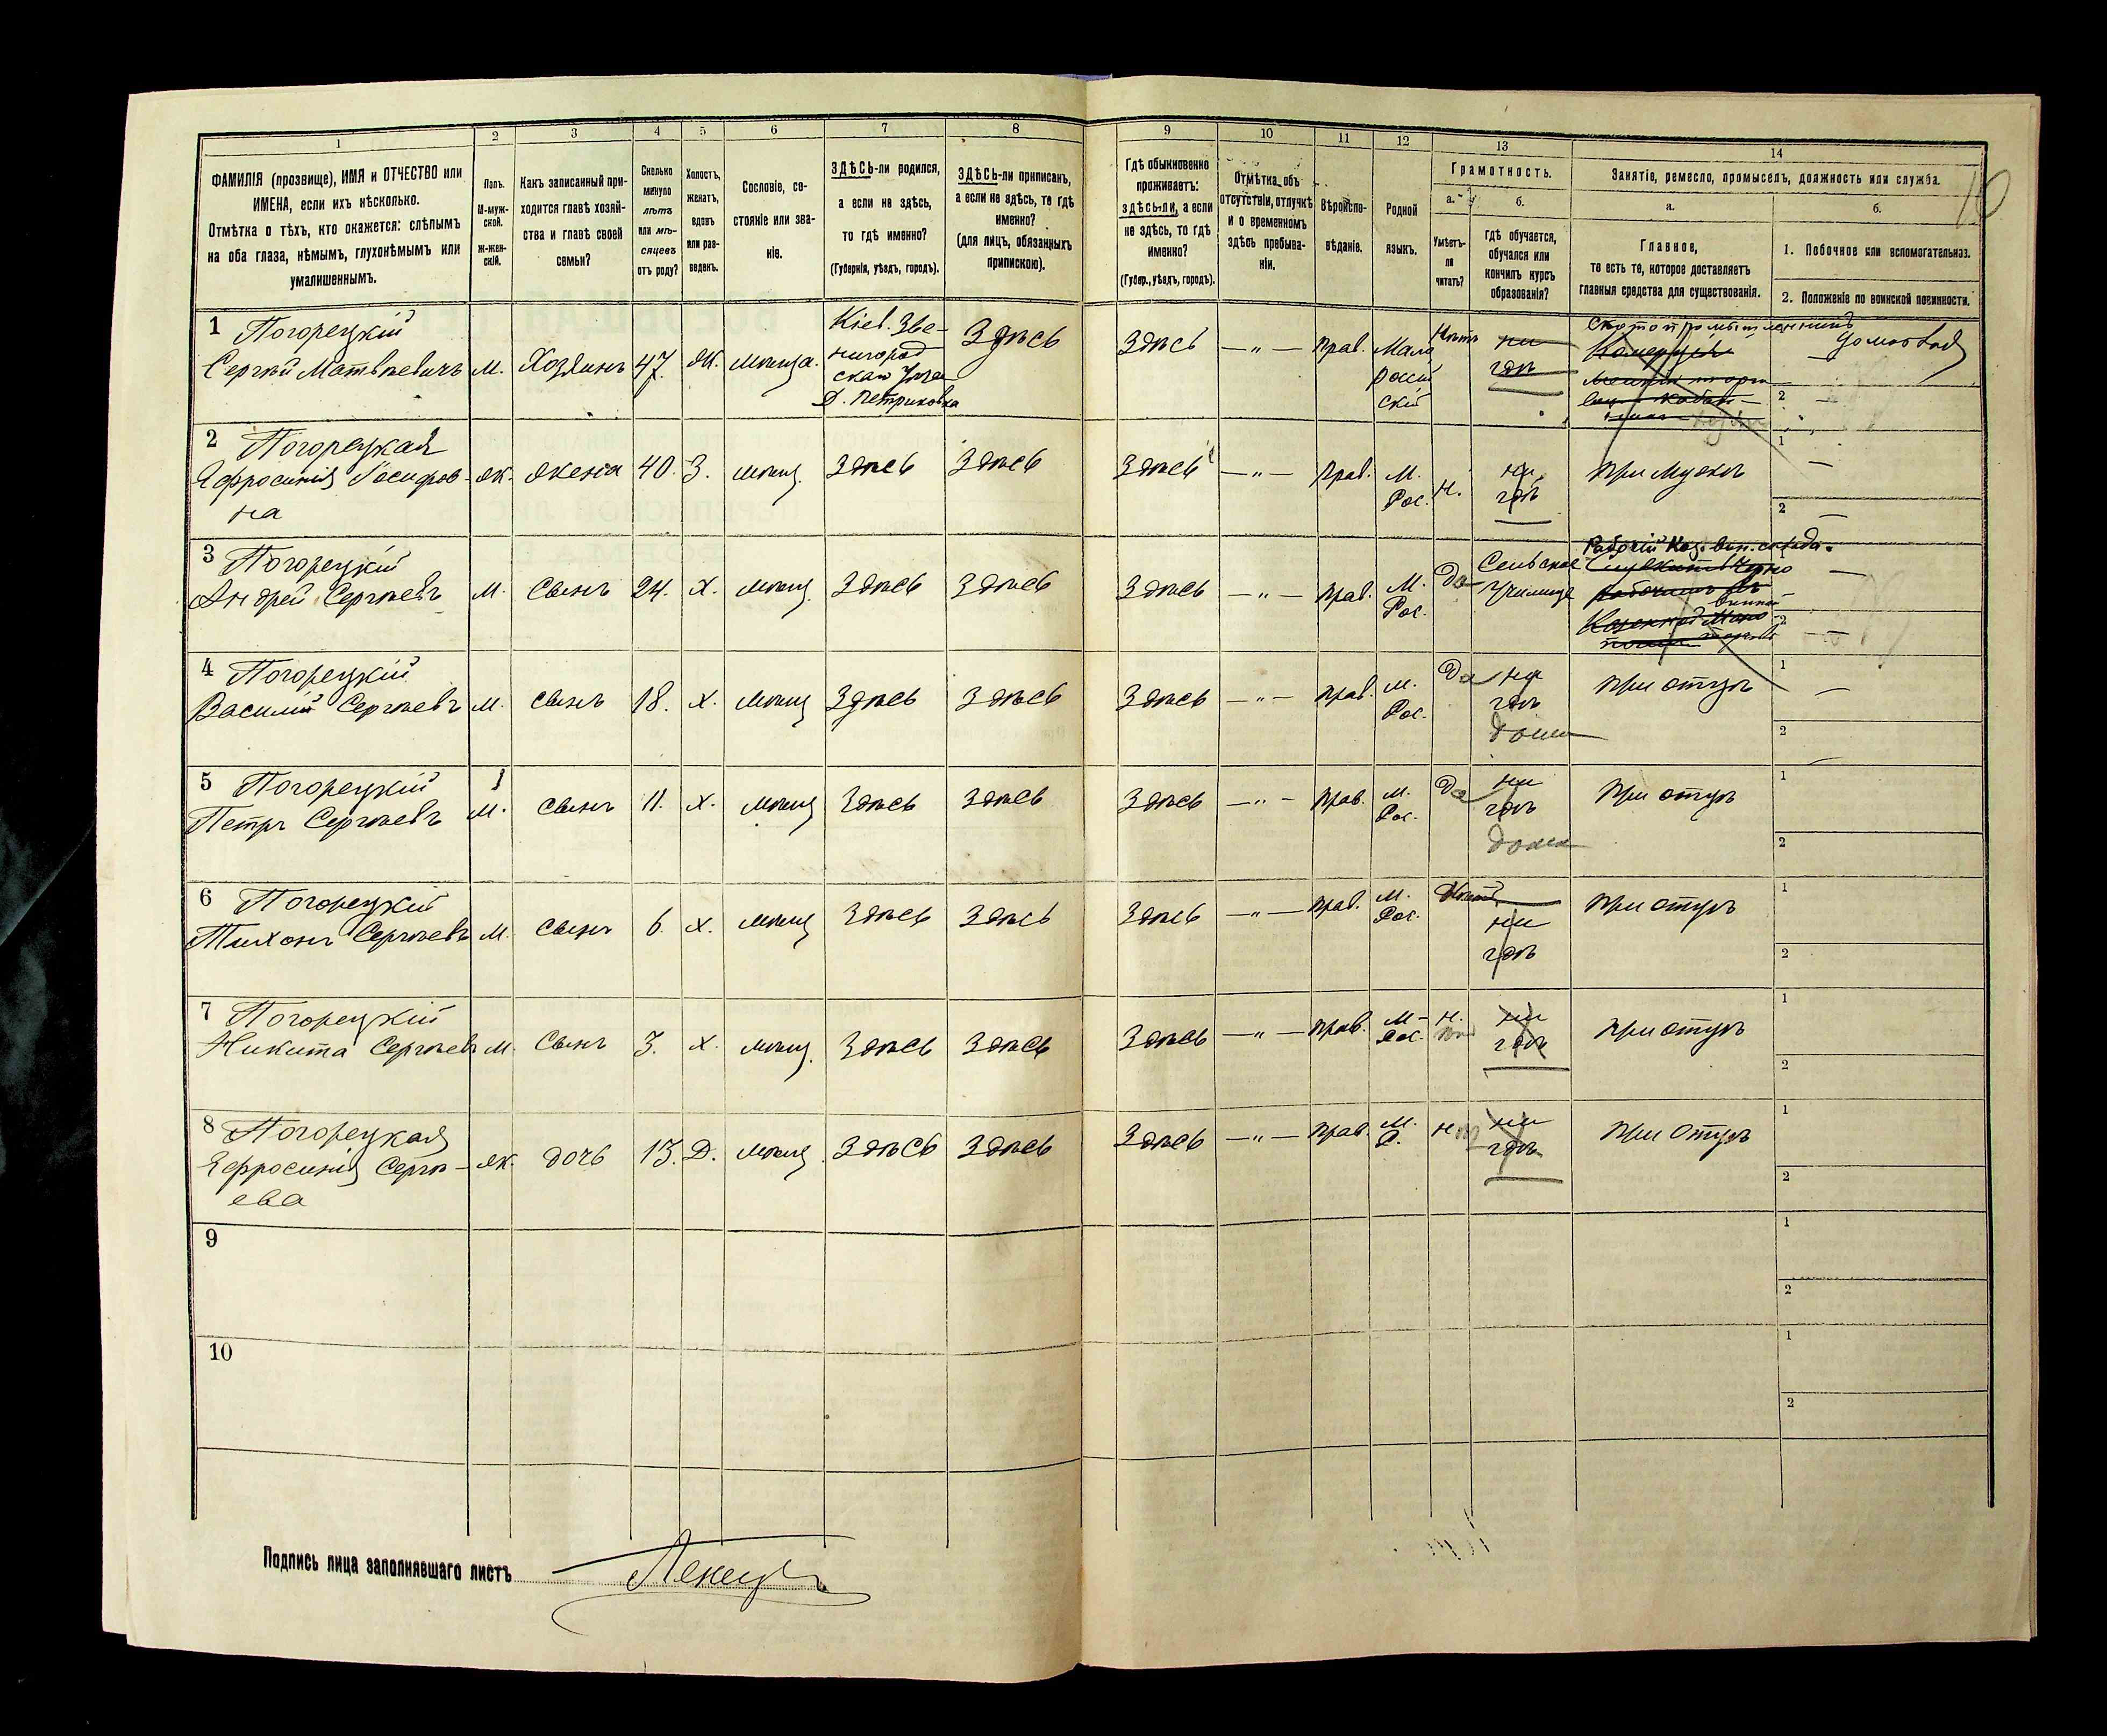 1 2 3 4 5 6 7 8 9 10 11 12 13 14
ФАМИЛІЯ (прозвище), ИМЯ и ОТЧЕСТВО или
ИМЕНА, если ихъ нѣсколько.
Отмѣтка о тѣхъ, кто окажется: слѣпымъ
на оба глаза, нѣмымъ, глухонѣмымъ или
умалишеннымъ.
Полъ.
М-муж-
ской.
Ж-жен-
скій.
Какъ записанный при-
ходится главѣ хозяй-
ства и главѣ своей
семьи?
Сколько
минуло
лѣтъ
или мѣ-
сяцевъ
отъ роду?
Холостъ,
женатъ,
вдовъ
или раз-
веденъ.
Сословіе, со-
стояніе или зва-
ніе.
ЗДѢСЬ-ли родился,
а если не здѣсь,
то гдѣ именно?
(Губернія, уѣздъ, городъ).
ЗДѢСЬ-ли приписанъ,
а если не здѣсь, то гдѣ
именно?
(для лицъ, обязанныхъ
припискою).
Гдѣ обыкновенно
проживаетъ:
здѣсь-ли, а если
не здѣсь, то гдѣ
именно?
(Губер., уѣздъ, городъ).
Отмѣтка объ
отсутствіи, отлучкѣ
и о временномъ
здѣсь пребыва-
ніи.
Вѣроиспо-
вѣданіе.
Родной
языкъ.
Грамотность.
а.
Умѣетъ-
ли
читать?
б.
Гдѣ обучается,
обучался или
кончилъ курсъ
образованія?
Занятіе, ремесло, промыселъ, должность или служба.
а.
Главное,
то есть то, которое доставляетъ
главныя средства для существованія.
б.
1. Побочное или вспомогательное.
2. Положеніе по воинской повинности.
1 Погорецкій
Сергѣй Матвѣевичъ М. Хозяинъ 47. Ж. мѣща.
Кіев. Зве-
нигород
ская
Д. Петриковка
Здѣсь
Здѣсь — " — прав. Мало
россій
скій
Нѣтъ ни
гдѣ
Скотопромышленникъ
2
2 Погорецкая
Ефросинія Іосифов-
на
Ж. жена 40. З. мѣщ. Здѣсь Здѣсь
Здѣсь — " — прав. М.
Рос. Н. ни
гдѣ
при мужѣ
1
2
3 Погорецкій
Андрей Сергѣевъ М. Сынъ 24. Х. мѣщ. Здѣсь Здѣсь
Здѣсь — " — прав. М.
Рос. Да Сельское
Училище
Рабочій Каз. вин. склада.
2
4 Погорецкій
Василій Сергѣевъ М. сынъ 18. Х. мѣщ Здѣсь Здѣсь
Здѣсь — " — прав. М.
Рос. Да ни
гдѣ
дома
при отцѣ
1
2
5 Погорецкій
Петръ Сергѣевъ М. сынъ 11. Х. мѣщ Здѣсь Здѣсь
Здѣсь — " — прав. М.
Рос. Да ни
гдѣ
дома
при отцѣ
1
2
6 Погорецкій
Тихонъ Сергѣевъ М. Сынъ 6. Х. мѣщ Здѣсь Здѣсь
Здѣсь — " — прав. М.
Рос. Нѣтъ
ни
гдѣ
при отцѣ
1
2
7 Погорецкій
Никита Сергѣевъ М. Сынъ 3. Х. мѣщ. Здѣсь Здѣсь
Здѣсь — " — прав. М-
Рос. Н. ни
гдѣ
при отцѣ
1
2
8 Погорецкая
Ефросинія Сергѣ-
ева
Ж. дочь 13. Д. мѣщ. Здѣсь Здѣсь
Здѣсь — " — прав. М.
Р. Н ни
гдѣ
при отцѣ
1
2
9
1
2
10
1
2
Подпись лица заполнявшаго листъ